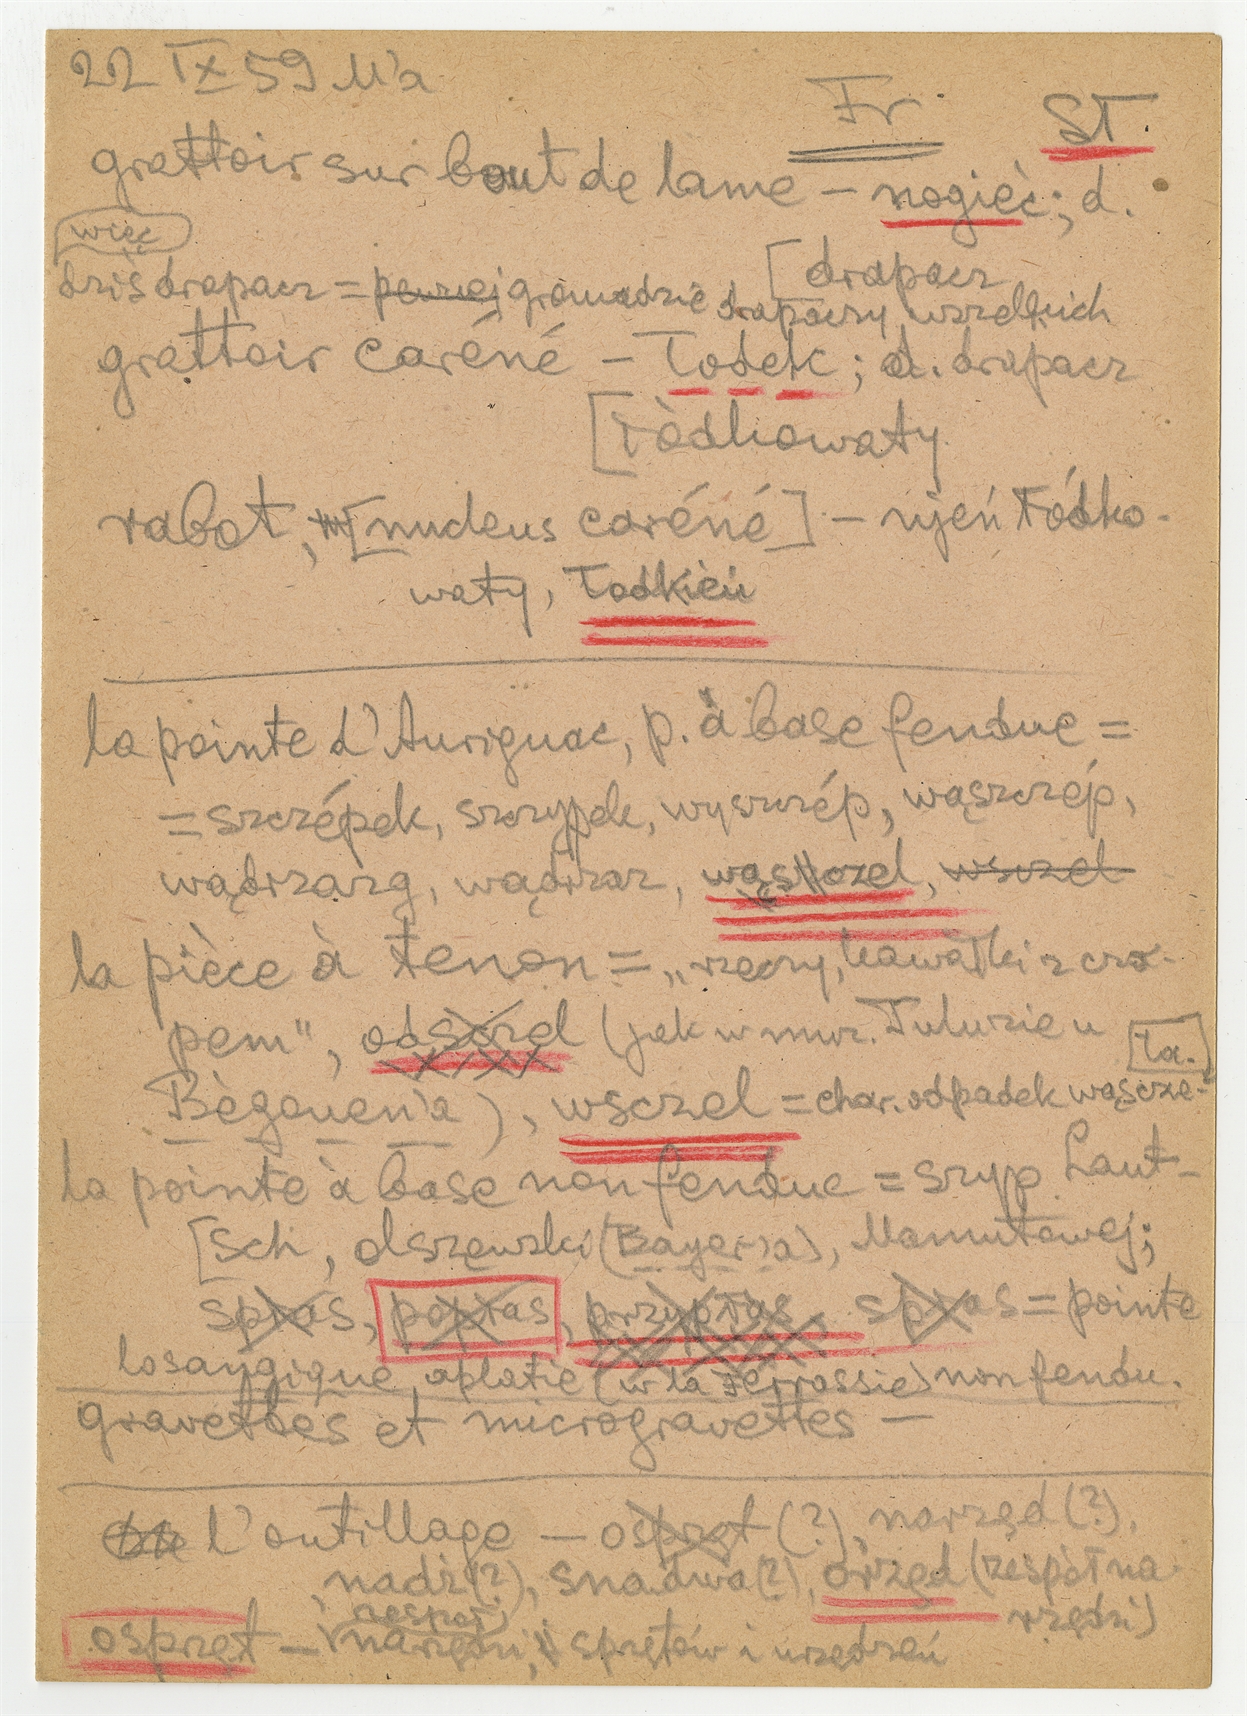 22 IX 59 M'a
Fr. ST.
grattoir sur bout de lame – nogieć; d.
więc [drapacz
dziś drapacz = pewnej gromadzie drapaczy wszelkich
grattoir caréné – łodek; d. drapacz
[łódkowaty
rabot, [nucleus caréné] – rdzeń łódko-
waty, łodkień
la pointe d'Aurignac, p. à base fendue =
= szczépek, szczypek, wyszczép, wąszczép,
wądrzazg, wądrzaz, wąszczel, wszczel
la pièce à tenon = „rzeczy, kawałki z czo-
pem", odszczel (jak w muz. Tuluzie u
Bègouen'a), wsczel = char. odpadek wąscze-
[ła.]
la pointe à base non fendue = szyp Laut-
[sch, olszewski (Bayer'a), Mamutowej;
spłas, popłas, przypłas, spłas = pointe
losangique aplatie (w la Ferrassie) non fendu.
gravettes et microgravettes –
l'outillage – osprzęt (?), narzęd (?),
nadź (?), snadwa (?), orzęd (zespół na-
rzędzi)
zespół
osprzęt – narzędzi, sprzętów i urządzeń